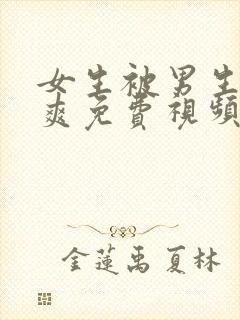 女生被男生
爽免费視頻
金蓮禹夏林